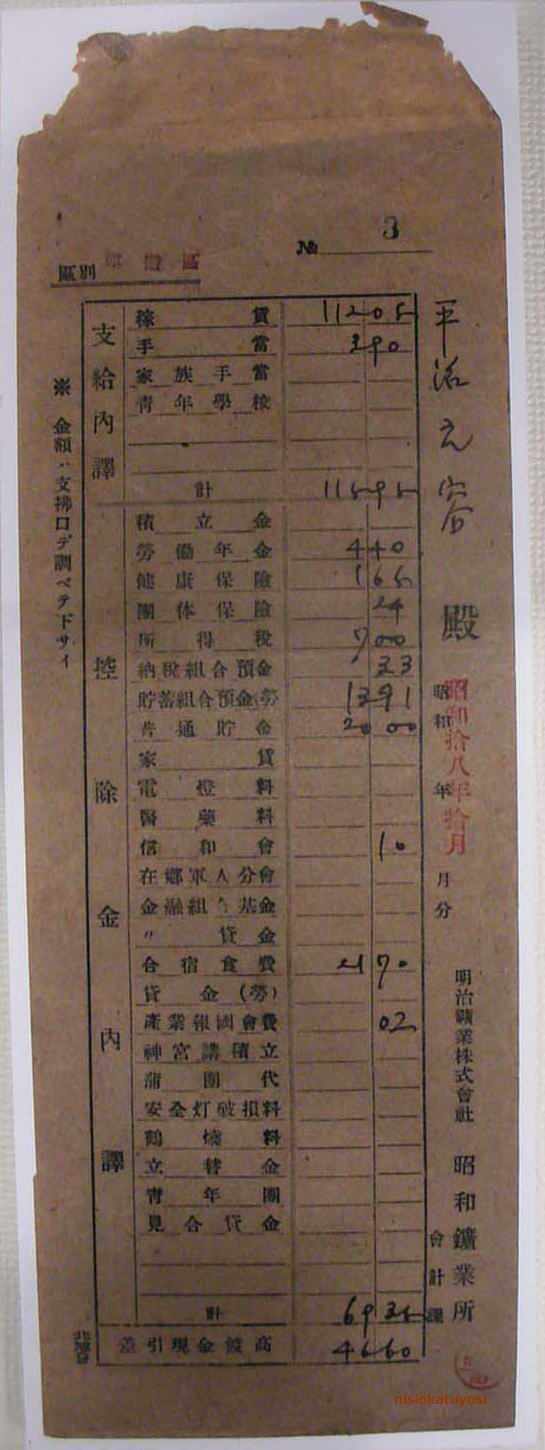 № 3
區別
殿
昭和拾八年拾月
昭和 年 月分
明治鑛業株式會社 昭和鑛業所
會計課
支給內譯
稼賃 112 05
手當 3 90
家族手當
青年學校
計 115 95
控除金內譯
積立金
勞働年金 4 40
健康保險 1 65
團体保險 24
所得稅 7 00
納稅組合預金 33
貯蓄組合預金(勞) 13 91
普通貯金 20 00
家賃
電燈料
醫藥料
信和會 10
在鄉軍人分會
金融組合基金
〃 貸金
合宿食費 21 70
貸金(勞)
產業報國會費 02
神宮講積立
蒲團代
安全灯破損料
鶴嘴料
立替金
青年團
見合貸金
計 69 35
差引現金渡高 46 60
※ 金額ハ支拂口デ調ベテ下サイ
nisiokatuyosi